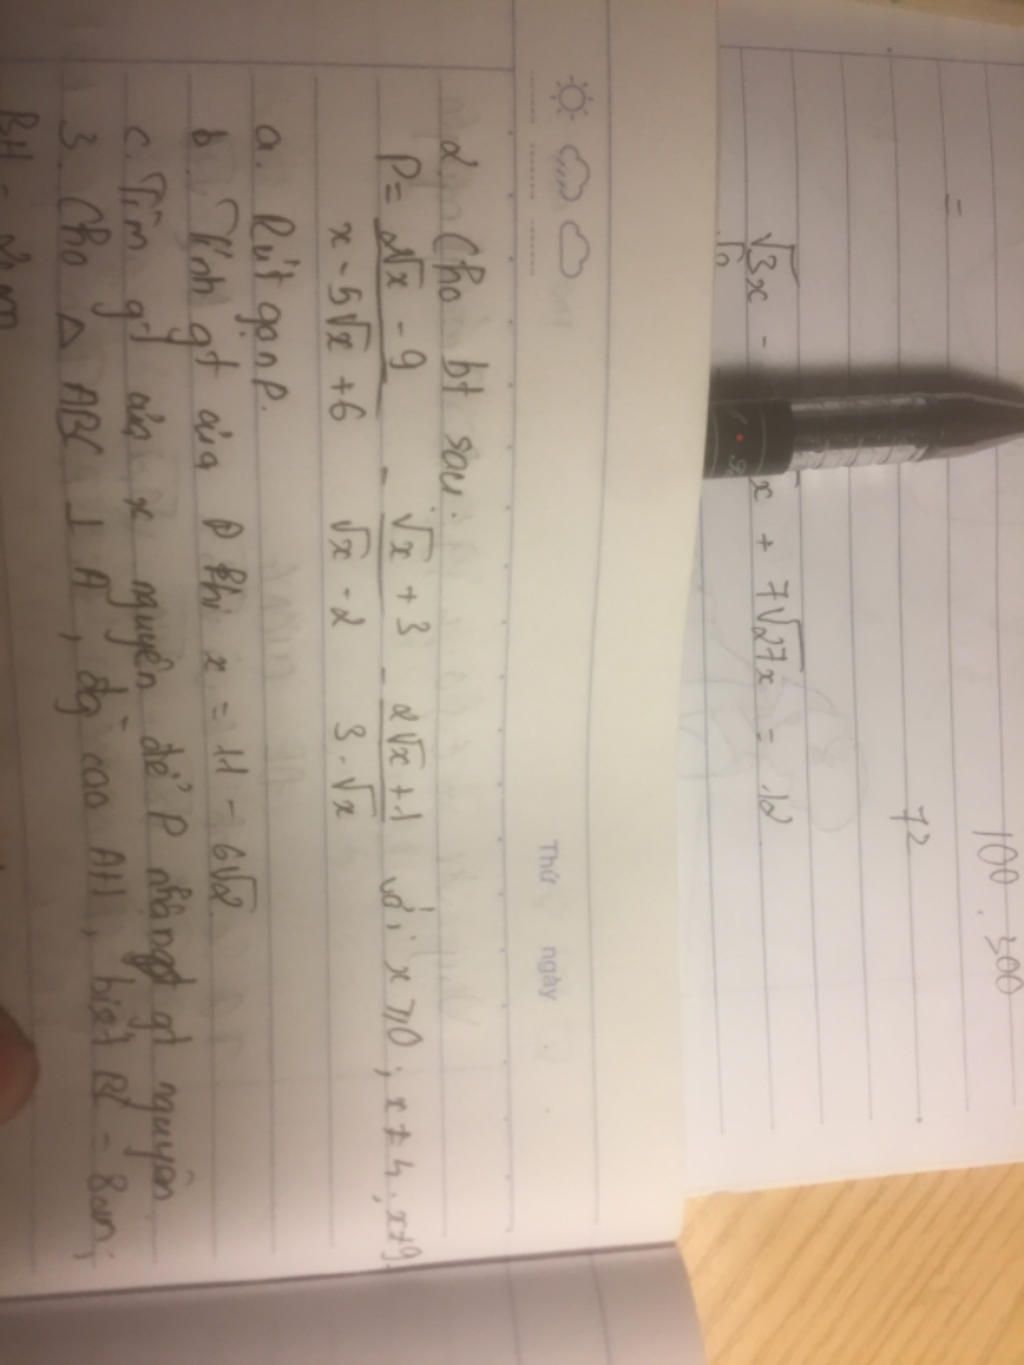 100. 500
=
72
√3x - x + 7√27x = 12
Thứ ngày
2. Cho bt sau:
P = 2√x - 9 / x - 5√x + 6 - √x + 3 / √x - 2 - 2√x + 1 / 3 - √x với x ≥ 0; x ≠ 4, x ≠ 9.
a. Rút gọn P.
b. Tính gt của P khi x = 11 - 6√2
c. Tìm gt của x nguyên để P nhận gt nguyên.
3. Cho △ ABC ⊥ A, đg cao AH, biết BC = 8cm;
BH = 2cm